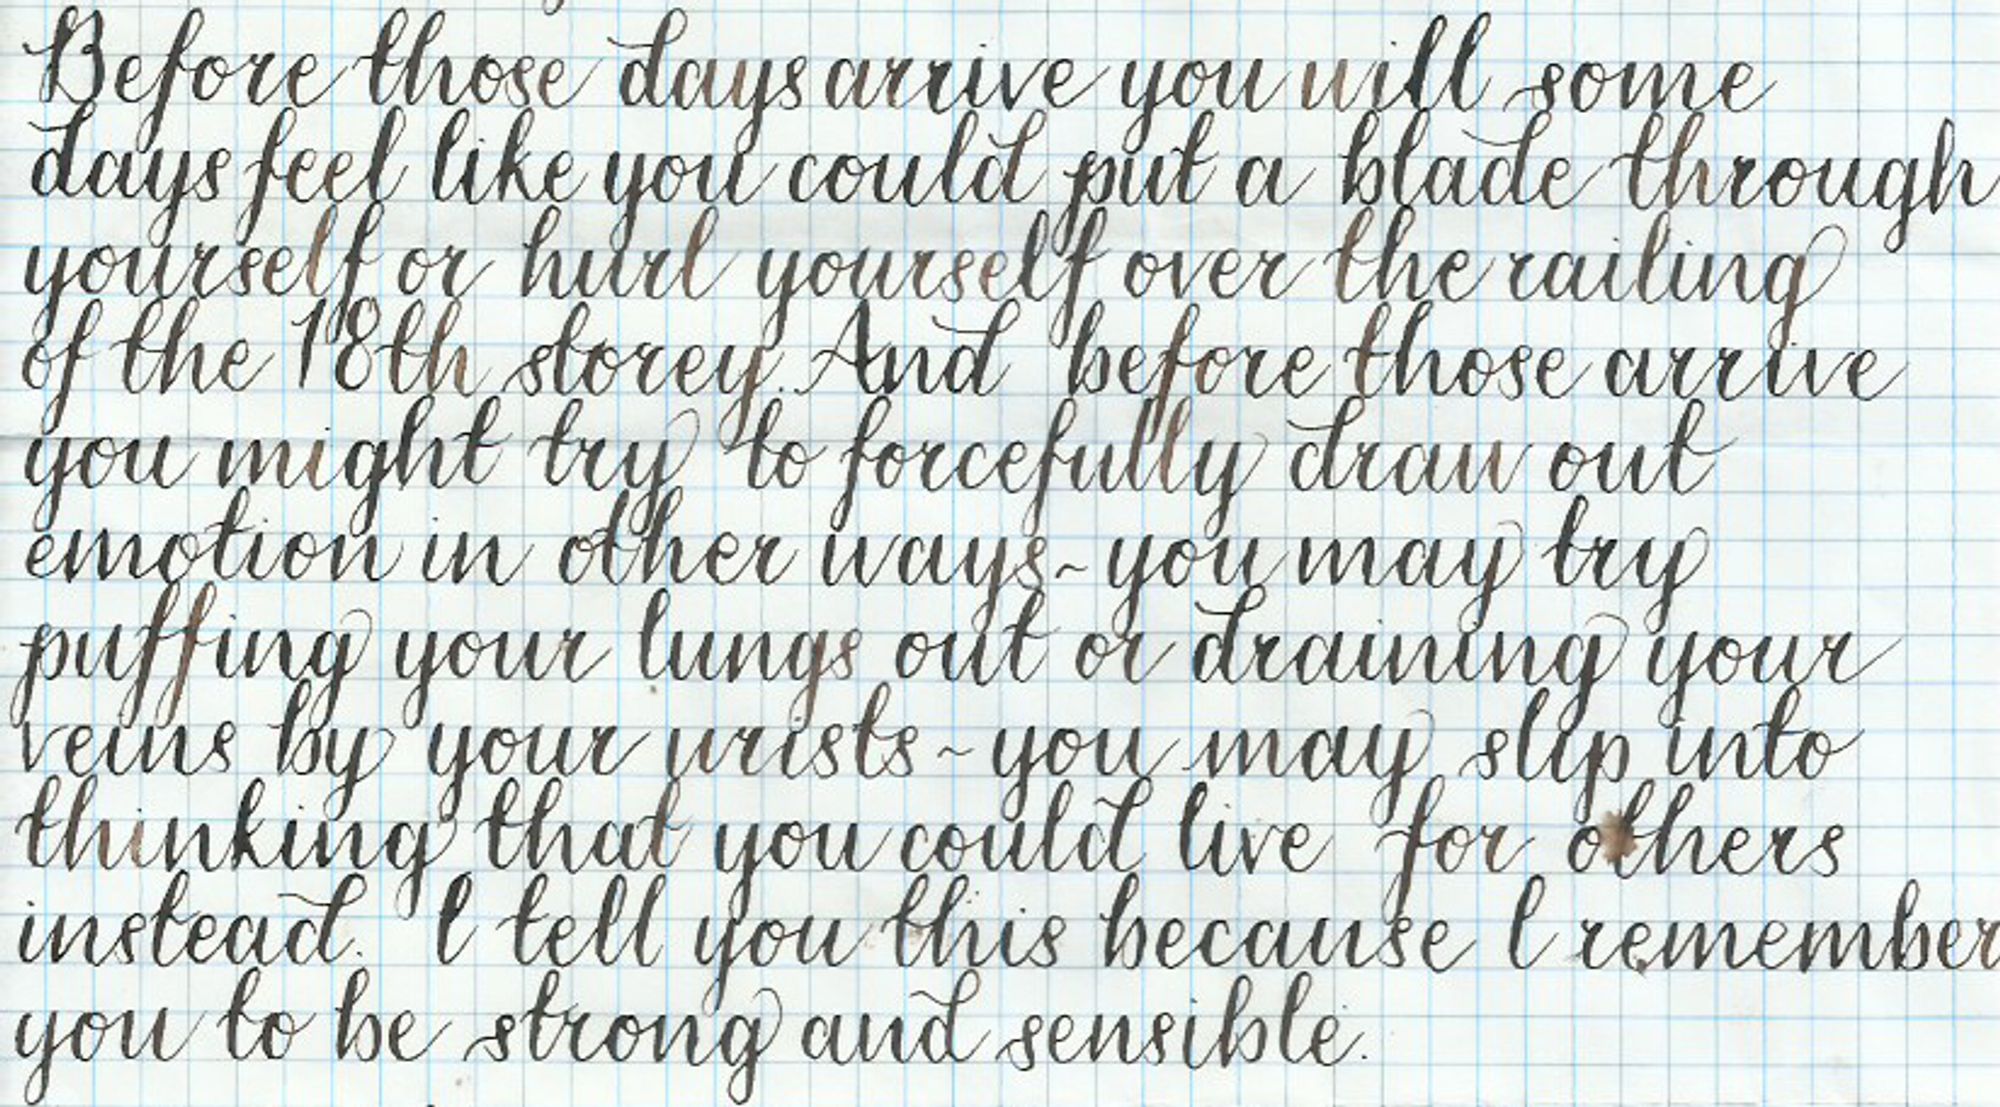 Before those days arrive you will some
days feel like you could put a blade through
yourself or hurl yourself over the railing
of the 18th storey. And before those arrive
you might try to forcefully draw out
emotion in other ways ~ you may try
puffing your lungs out or draining your
veins by your wrists ~ you may slip into
thinking that you could live for others
instead. I tell you this because I remember
you to be strong and sensible.